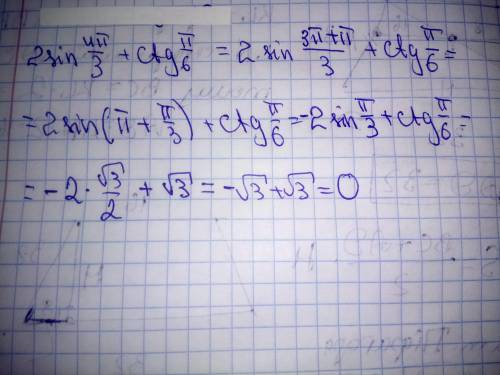 2sin 4π/3 + ctg π/6 = 2 sin (3π+π)/3 + ctg π/6 =
= 2sin(π + π/3) + ctg π/6 = -2sin π/3 + ctg π/6 =
= -2 · √3/2 + √3 = -√3 + √3 = 0